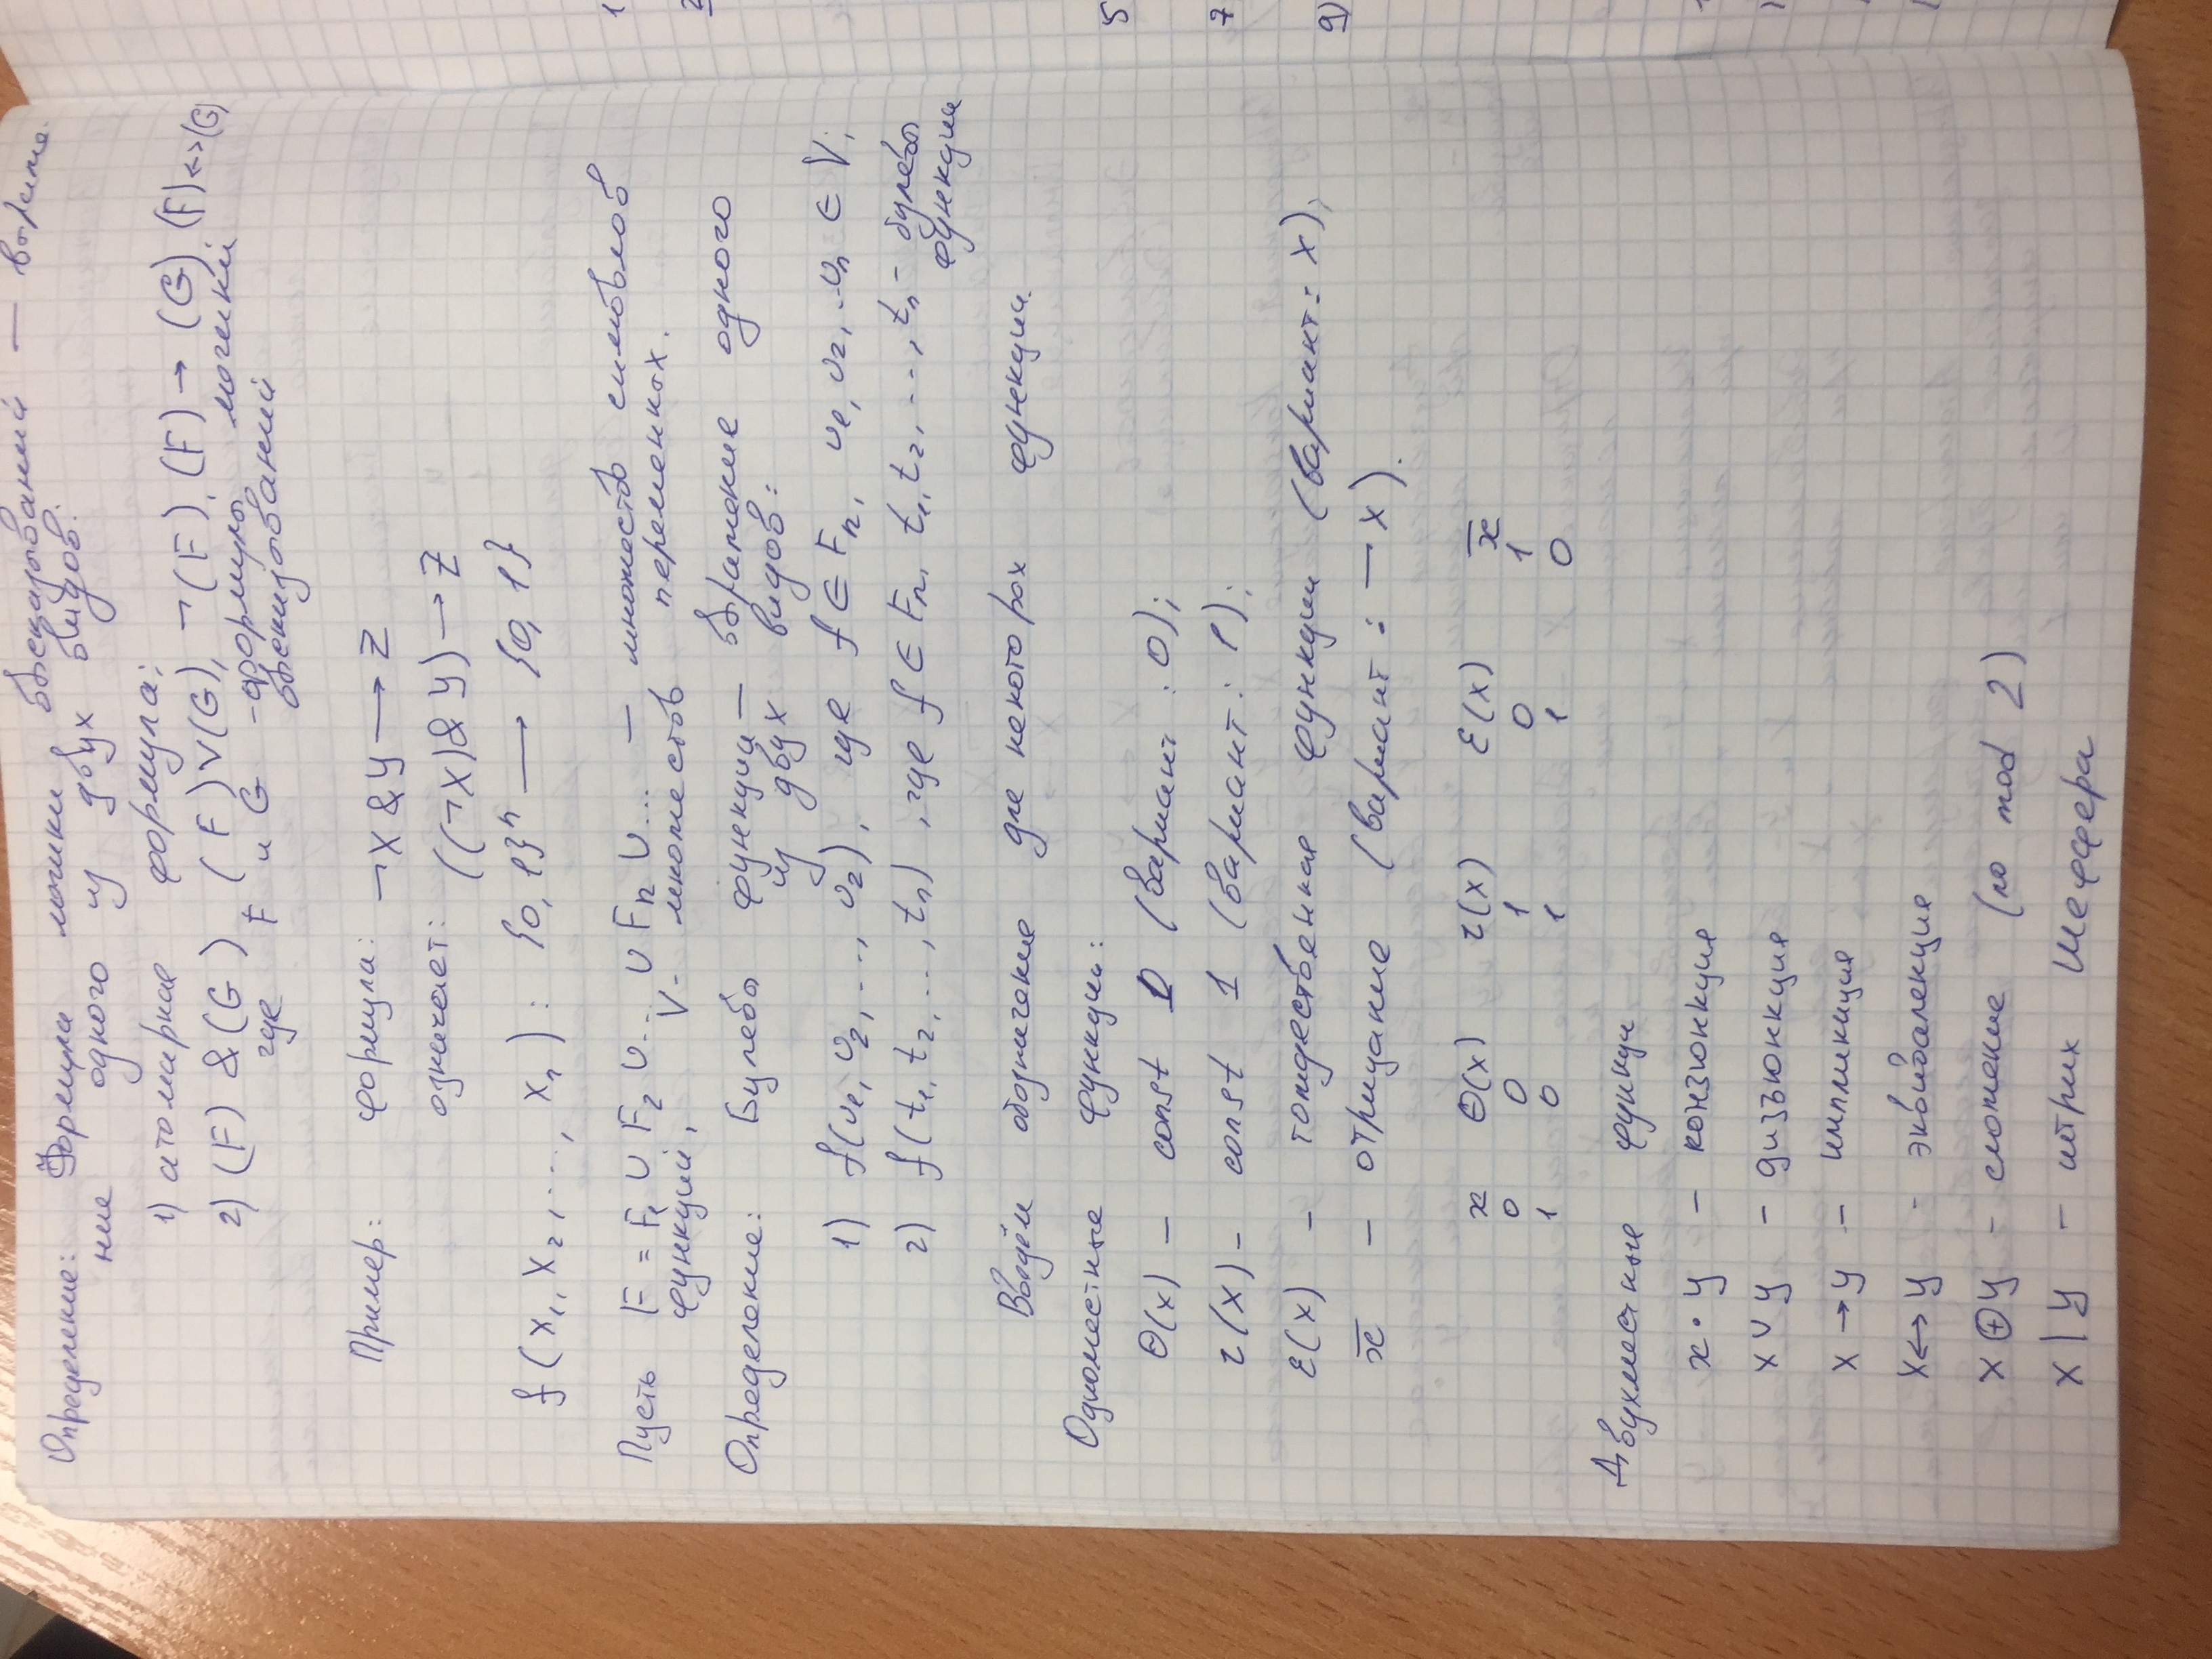 Определение: Формула логики высказываний — выраже-
ние одного из двух видов:
1) атомарная формула;
2) (F) & (G), (F) ∨ (G), ¬(F), (F) → (G), (F) ↔ (G)
где F и G - формулы логики
высказываний
Пример: формула: ¬X & Y → Z
означает: ((¬X) & Y) → Z
f(x₁, x₂, ..., xₙ) : {0, 1}ⁿ → {0, 1}
Пусть F = F₁ ∪ F₂ ∪ ... ∪ Fₙ ∪ ... — множество символов
функций, V - множество переменных.
Определение: Булевы функции — выражение одного
из двух видов:
1) f(v₁, v₂, ..., v₂), где f ∈ Fₙ, v₁, v₂, ..vₙ ∈ V;
2) f(t₁, t₂, ..., tₙ), где f ∈ Fₙ, t₁, t₂, ..., tₙ - булевы
функции
Введём обозначение для некоторых функции.
Одноместные функции:
Θ(x) — const 0 (вариант : 0);
τ(x) - const 1 (вариант : 1);
ε(x) — тождественная функции (вариант : x);
x̅ — отрицание (вариант : ¬x).
x Θ(x) τ(x) ε(x) x̅
0 0 1 0 1
1 0 1 1 0
Двухместные функци
x · y — конъюнкция
x ∨ y — дизъюнкция
x → y — импликация
x ↔ y - эквиваленция
x ⊕ y - сложение (по mod 2)
x | y — штрих Шеффера
1
2
5
7
9)